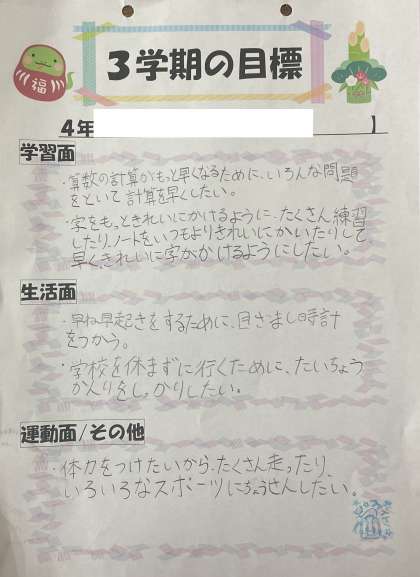 福
3学期の目標
4年
】
学習面
・算数の計算がもっと早くなるために、いろんな問題
をといて計算を早くしたい。
・字をもっときれいにかけるように、たくさん練習
したり、ノートをいつもよりきれいにかいたりして
早く、きれいに字がかけるようにしたい。
生活面
・早ね早起きをするために、目さまし時計
をつかう。
・学校を休まずに行くために、たいちょう
かんりをしっかりしたい。
運動面/その他
・体力をつけたいから、たくさん走ったり、
いろいろなスポーツにちょうせんしたい。